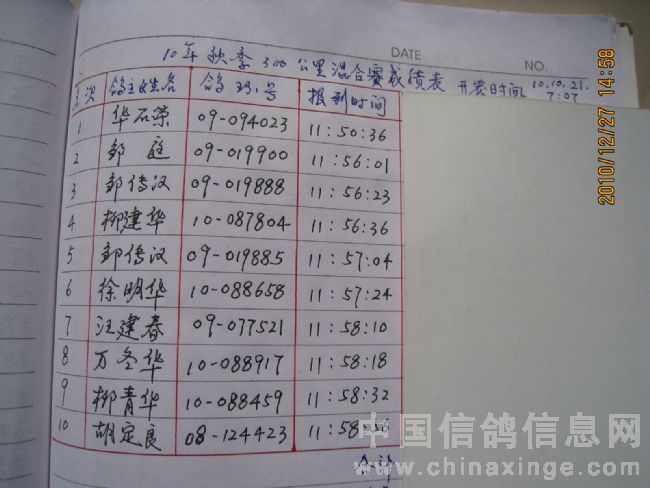 DATE
NO.
10年秋季300公里混合赛成绩表 开赛时间 10.10.21. 7:07
名次 鸽主姓名 鸽环号 报到时间
1 华石荣 09-094023 11:50:36
2 邹庭 09-019900 11:56:01
3 邹传汉 09-019888 11:56:23
4 柳建华 10-087804 11:56:36
5 邹传汉 09-019885 11:57:04
6 徐明华 10-088658 11:57:24
7 汪建春 09-077521 11:58:10
8 万冬华 10-088917 11:58:18
9 柳青华 10-088459 11:58:32
10 胡定良 08-124423 11:58:56
2010/12/27 14:58
中国信鸽信息网
www.chinaxinge.com